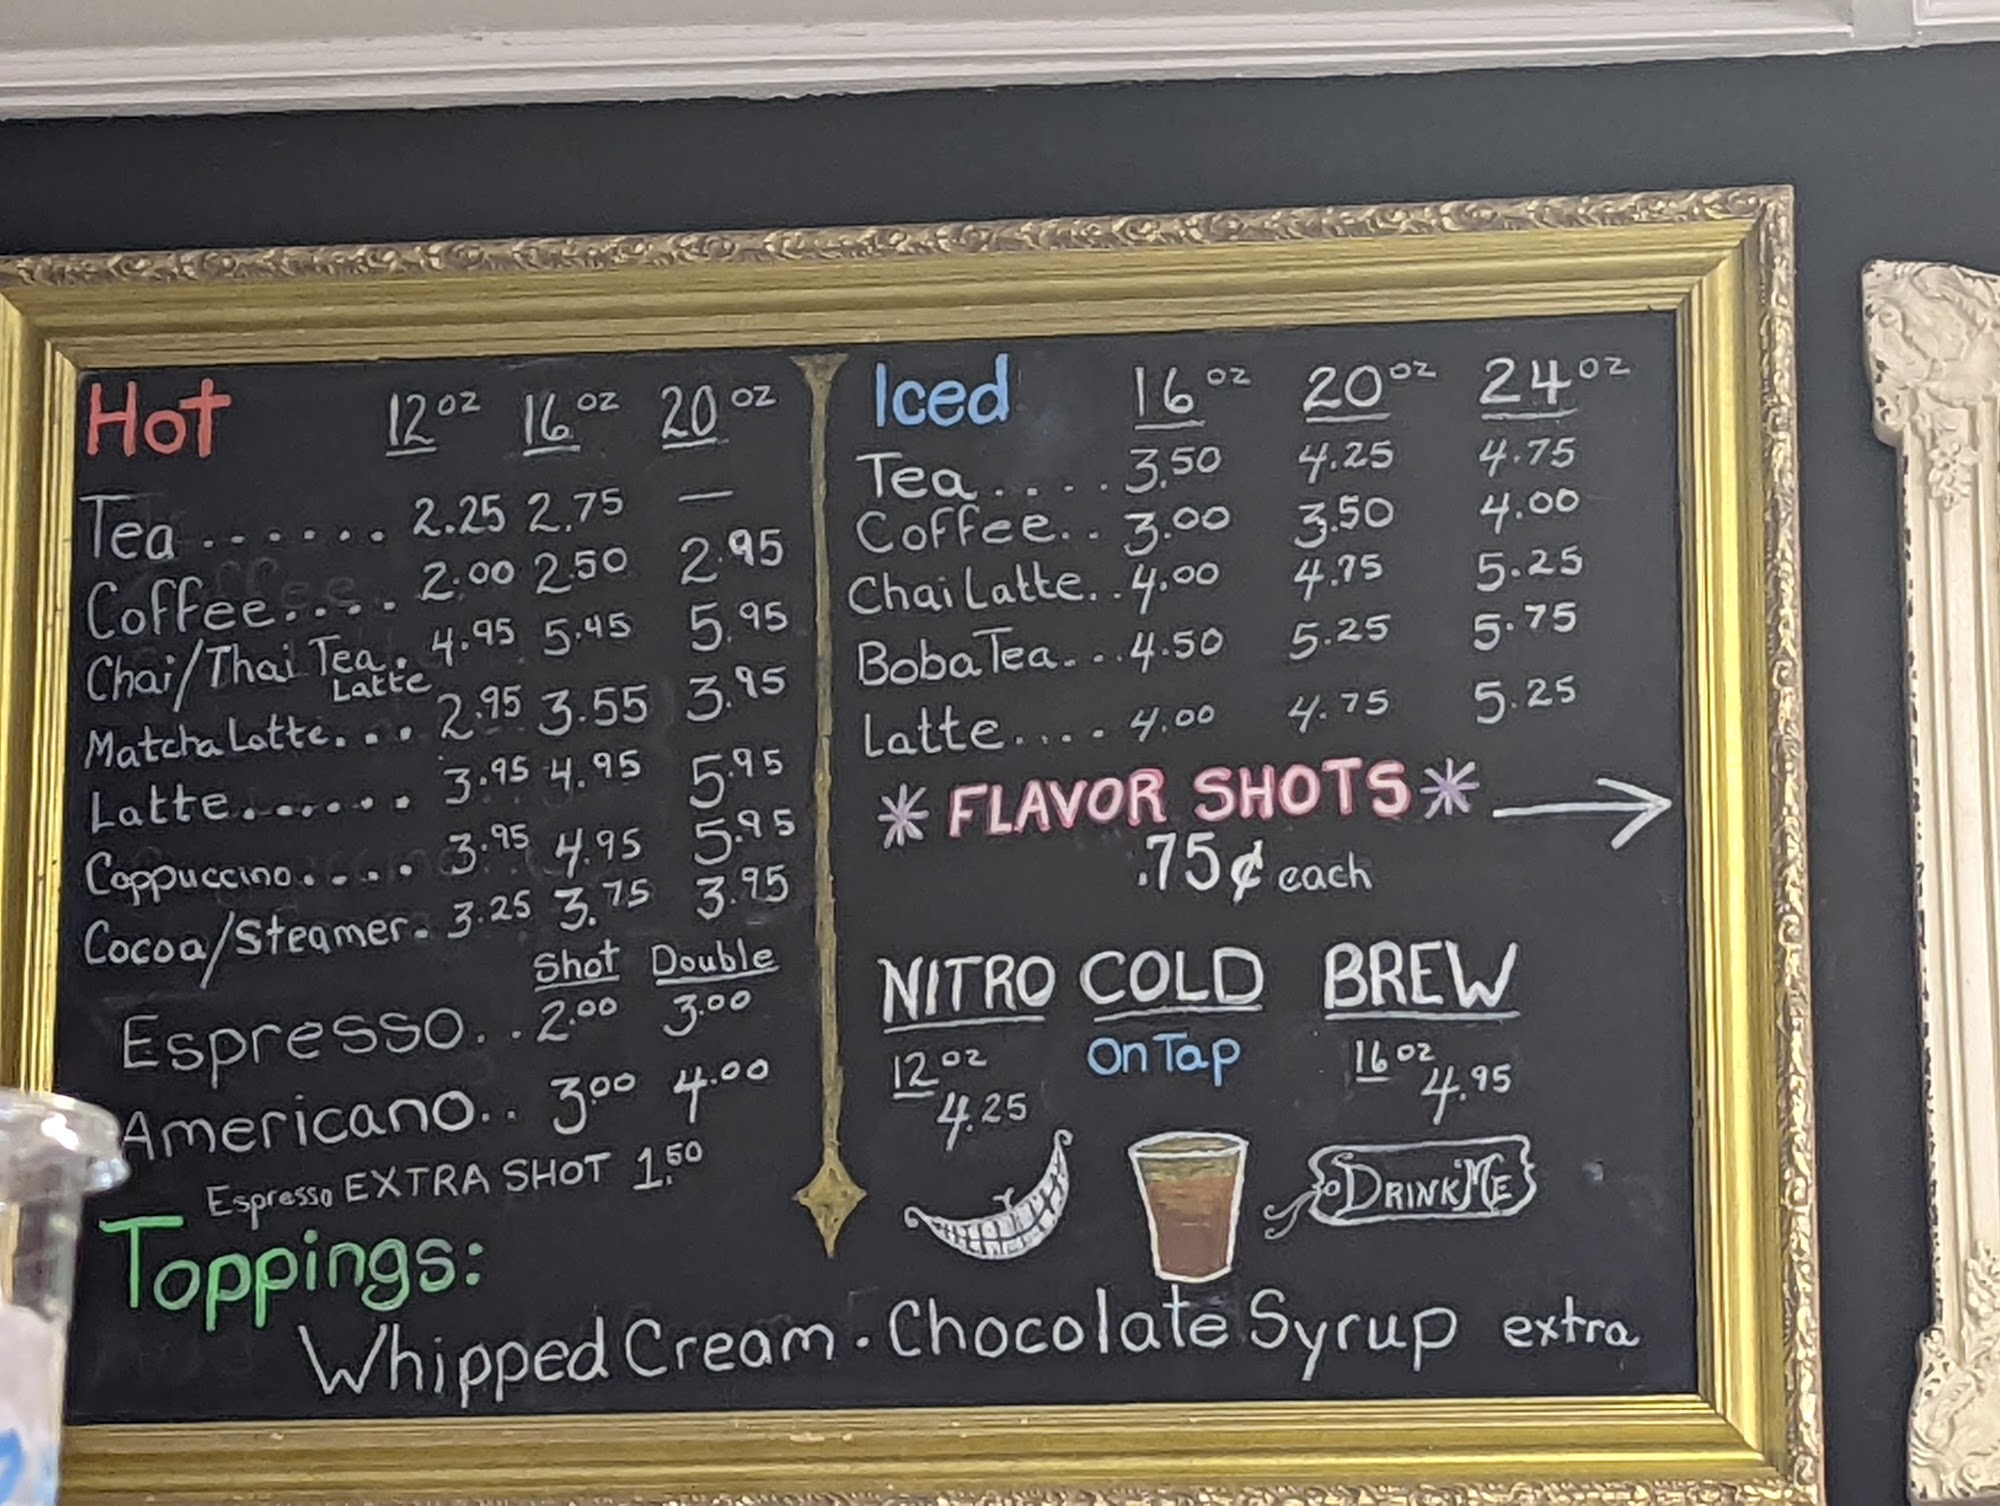 Hot 12 oz 16 oz 20 oz
Tea...... 2.25 2.75 —
Coffee.... 2.00 2.50 2.95
Chai/Thai Tea. 4.95 5.45 5.95
Latte
Matcha Latte.... 2.95 3.55 3.95
Latte...... 3.95 4.95 5.95
Cappuccino.... 3.95 4.95 5.95
Cocoa/Steamer. 3.25 3.75 3.95
Shot Double
Espresso.. 2.00 3.00
Americano.. 3.00 4.00
Espresso EXTRA SHOT 1.50
Iced 16 oz 20 oz 24 oz
Tea..... 3.50 4.25 4.75
Coffee.. 3.00 3.50 4.00
Chai Latte.. 4.00 4.75 5.25
Boba Tea... 4.50 5.25 5.75
Latte.... 4.00 4.75 5.25
* FLAVOR SHOTS * →
.75¢ each
NITRO COLD BREW
On Tap
12 oz 16 oz
4.25 4.95
DRINK ME
Toppings:
Whipped Cream · Chocolate Syrup extra